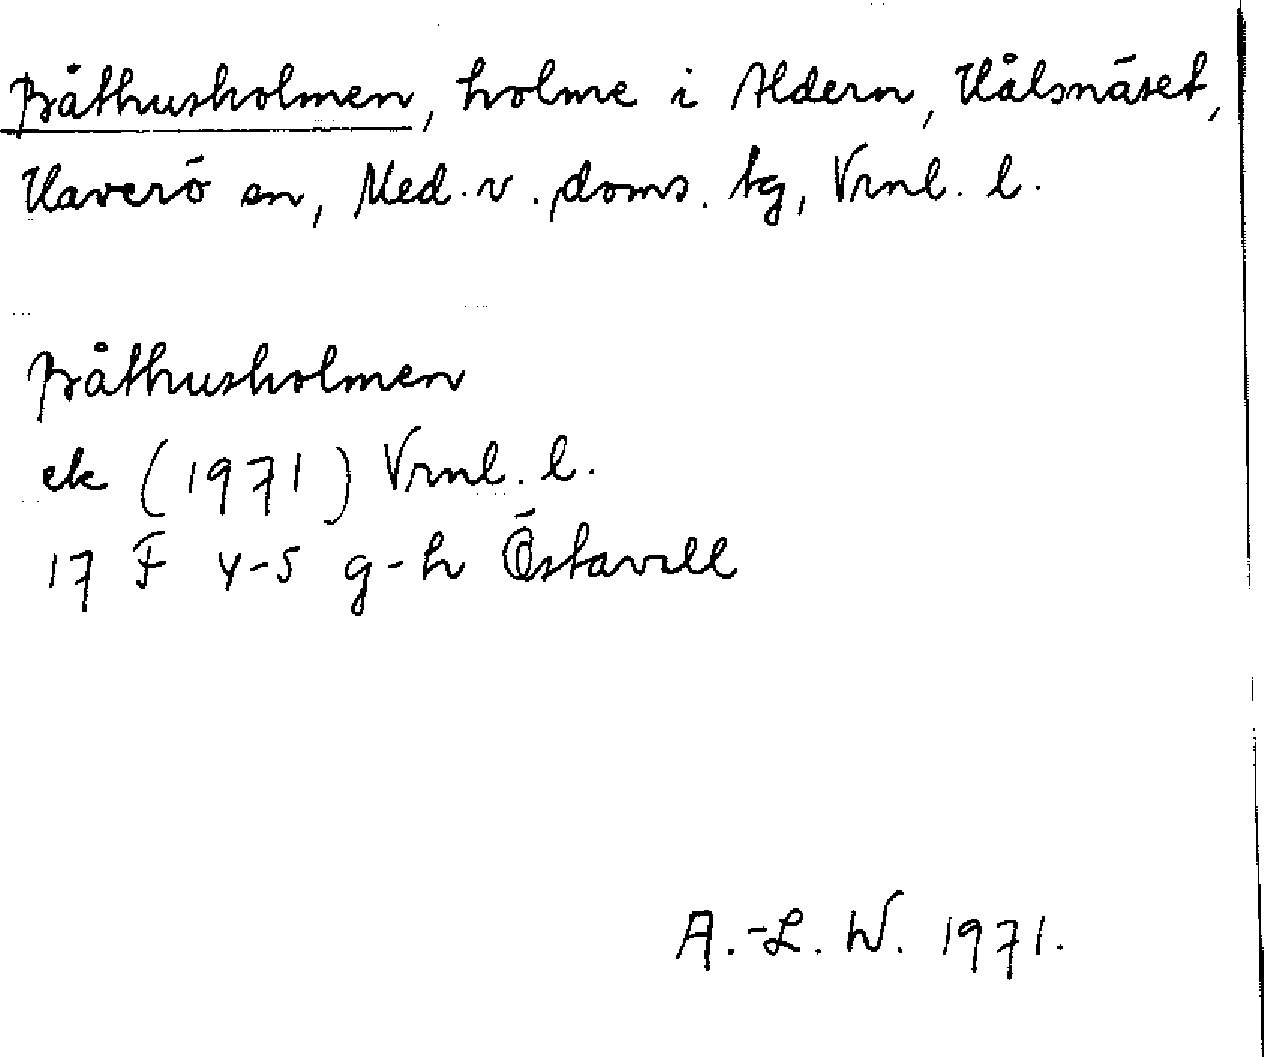 Båthusholmen, holme i Aldern, Hålsnäset,
Haverö sn, Med. v. doms. tg, Vrnl. l.
Båthusholmen
ek (1971) Vrnl. l.
17 F 4-5 g-h Östavall
A.-L. W. 1971.